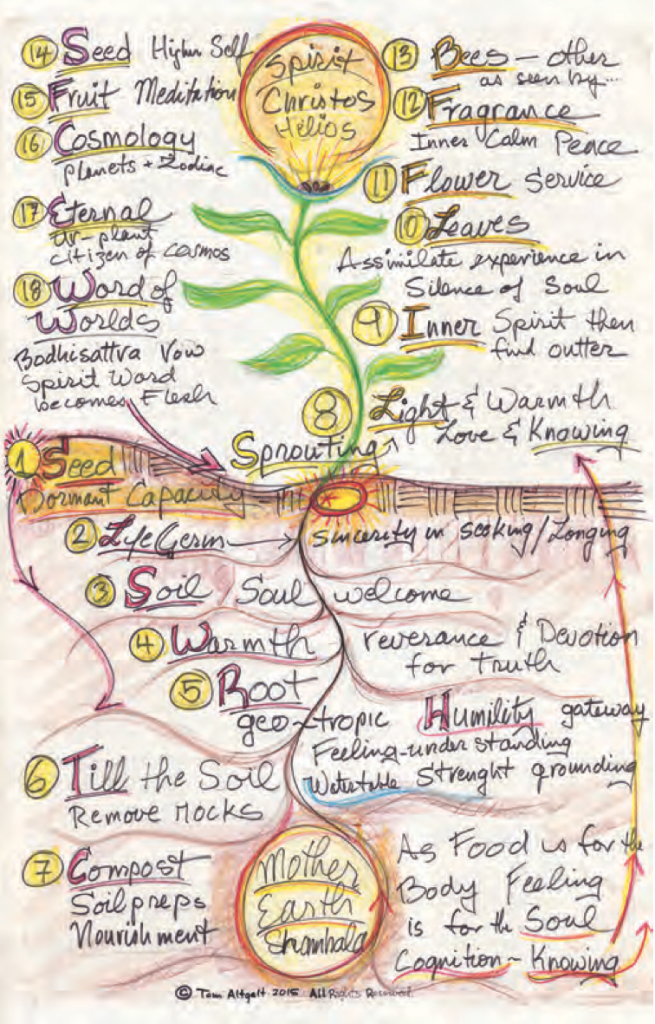 14 Seed Higher Self
15 Fruit Meditation
16 Cosmology
planets + Zodiac
17 Eternal
Ur-plant
citizen of cosmos
18 Word of
Worlds
Bodhisattva Vow
Spirit Word
becomes Flesh
Spirit
Christos
Helios
13 Bees - other
as seen by...
12 Fragrance
Inner Calm Peace
11 Flower Service
10 Leaves
Assimilate experience in
Silence of Soul
9 Inner Spirit then
find outter
8 Light & Warmth
Love & Knowing
Sprouting
1 Seed
Dormant Capacity
2 Life Germ → sincerity in seeking/Longing
3 Soil Soul welcome
4 Warmth reverance & Devotion
for Truth
5 Root Humility gateway
geo-tropic
Feeling-understanding
Watertable Strenght grounding
6 Till the Soil
Remove rocks
7 Compost
Soil preps
Nourishment
Mother
Earth
Shambala
As Food is for the
Body Feeling
is for the Soul
Cognition - Knowing
© Tom Altgelt 2015 All Rights Reserved.